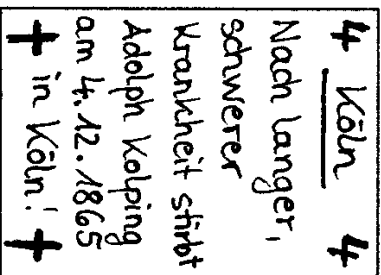 4 Köln 4
Nach langer,
schwerer
Krankheit stirbt
Adolph Kolping
am 4.12.1865
in Köln!